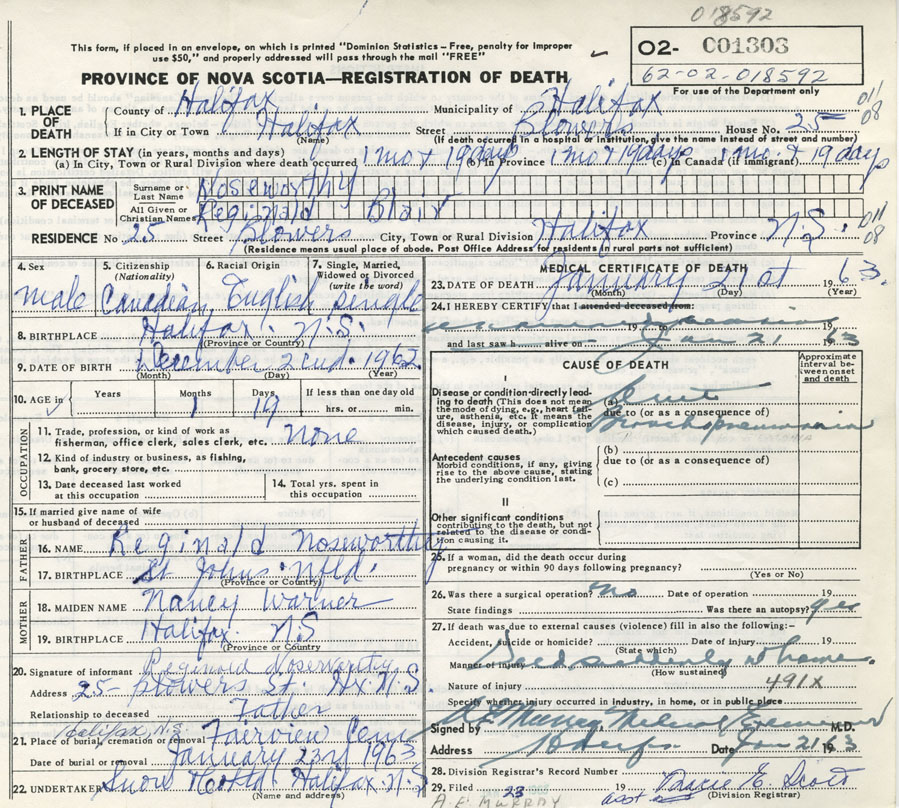 018592
This form, if placed in an envelope, on which is printed "Dominion Statistics – Free, penalty for Improper
use $50," and properly addressed will pass through the mail "FREE"
02- C01303
62-02-018592
For use of the Department only
PROVINCE OF NOVA SCOTIA—REGISTRATION OF DEATH
1. PLACE OF DEATH County of Halifax Municipality of Halifax
If in City or Town Halifax Street Blowers House No. 25 011 08
(Name) (If death occurred in a hospital or institution, give the name instead of street and number)
2. LENGTH OF STAY (in years, months and days)
(a) In City, Town or Rural Division where death occurred 1 mo & 19 days (b) In Province 1 mo & 19 days (c) In Canada (if immigrant) 1 mo. & 19 days
3. PRINT NAME OF DECEASED Surname or Last Name Noseworthy
All Given or Christian Names Reginald Blair
RESIDENCE No. 25 Street Blowers City, Town or Rural Division Halifax Province N.S. 011 08
(Residence means usual place of abode. Post Office Address for residents in rural parts not sufficient)
4. Sex 5. Citizenship (Nationality) 6. Racial Origin 7. Single, Married, Widowed or Divorced (write the word)
Male Canadian English single
8. BIRTHPLACE Halifax. N.S.
(Province or Country)
9. DATE OF BIRTH December 2cnd. 1962.
(Month) (Day) (Year)
10. AGE in Years Months Days If less than one day old
1 19 hrs. or min.
OCCUPATION
11. Trade, profession, or kind of work as
fisherman, office clerk, sales clerk, etc. None
12. Kind of industry or business, as fishing,
bank, grocery store, etc.
13. Date deceased last worked at this occupation 14. Total yrs. spent in this occupation
15. If married give name of wife
or husband of deceased
FATHER
16. NAME Reginald Noseworthy
17. BIRTHPLACE St Johns Nfld.
(Province or Country)
MOTHER
18. MAIDEN NAME Nancy Warner
19. BIRTHPLACE Halifax. N.S
(Province or Country)
20. Signature of informant Reginald Noseworthy
Address 25 Blowers St. Hx. N.S.
Relationship to deceased Father
Halifax, N.S.
21. Place of burial, cremation or removal Fairview Cem.
Date of burial or removal January 23rd 1963
22. UNDERTAKER Snow Halifax N.S
(Name and address)
MEDICAL CERTIFICATE OF DEATH
23. DATE OF DEATH January 21st 1963.
(Month) (Day) (Year)
24. I HEREBY CERTIFY that I attended deceased from:
19 to 19
and last saw h alive on Jan 21 1963
CAUSE OF DEATH
Approximate interval between onset and death
I
Disease or condition directly leading to death (This does not mean the mode of dying, e.g., heart failure, asthenia, etc. It means the disease, injury, or complication which caused death.)
(a) Acute
due to (or as a consequence of)
Bronchopneumonia
Antecedent causes
Morbid conditions, if any, giving rise to the above cause, stating the underlying condition last.
(b)
due to (or as a consequence of)
(c)
II
Other significant conditions
contributing to the death, but not related to the disease or condition causing it.
25. If a woman, did the death occur during
pregnancy or within 90 days following pregnancy?
(Yes or No)
26. Was there a surgical operation? no Date of operation 19
State findings Was there an autopsy? yes
27. If death was due to external causes (violence) fill in also the following:–
Accident, suicide or homicide? Date of injury 19
(State which)
Manner of injury Died suddenly at home.
(How sustained)
Nature of injury 491X
Specify whether injury occurred in industry, in home, or in public place
Signed by A E Murray Medical Examiner M.D.
Address Halifax Date Jan 21 1963
28. Division Registrar's Record Number
29. Filed 23 19 Scott
A.E. MURRAY (Division Registrar)